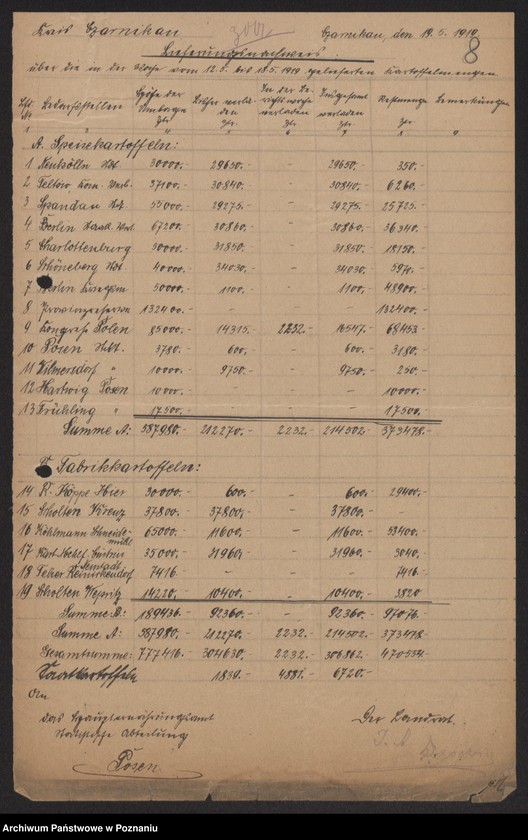 Kreis Czarnikau Czarnikau, den 19.5.1919.
8
Lieferungsnachweis
über die in der Woche vom 12.5. bis 18.5.1919 gelieferten Kartoffelmengen
Höhe der Umlagen Ztr. Bisher verladen Ztr. In der Berichtswoche verladen Ztr. Insgesamt verladen Ztr. Restmenge Ztr. Bemerkungen
A. Speisekartoffeln:
1 Neukölln 30000.- 29650.- - 29650.- 350.-
2 Teltow Kom. Verb. 37100.- 30840.- - 30840.- 6260.-
3 Spandau 55000.- 29275.- - 29275.- 25725.-
4 Berlin 67200.- 30860.- - 30860.- 36340.-
5 Charlottenburg 50000.- 31850.- - 31850.- 18150.-
6 Schöneberg 40000.- 34030.- - 34030.- 5970.-
7 Berlin 50000.- 1100.- - 1100.- 48900.-
8 Provinzreserve 132400.- - - - 132400.-
9 Kongreß Polen 85000.- 14315.- 2232.- 16547.- 68453.-
10 Posen 3780.- 600.- - 600.- 3180.-
11 Wilmersdorf " 10000.- 9750.- - 9750.- 250.-
12 Hartwig Posen 10000.- - - - 10000.-
13 Frühling " 17500.- - - - 17500.-
Summe A: 587980.- 212270.- 2232.- 214502.- 373478.-
B. Fabrikkartoffeln:
14 Köppe 30000.- 600.- - 600.- 29400.-
15 Scholten Kreuz 37800.- 37800.- - 37800.- -
16 Köhlmann Schneidemühl 65000.- 11600.- - 11600.- 53400.-
17 Neustadt 35000.- 31960.- - 31960.- 3040.-
18 Reinickendorf 7416.- - - - 7416.-
19 Scholten Wepritz 14220.- 10400.- - 10400.- 3820
Summe B: 189436.- 92360.- - 92360.- 97076.-
Summe A: 587980.- 212270.- 2232.- 214502.- 373478
Gesamtsumme: 777416.- 304630.- 2232.- 306862.- 470554.-
Saatkartoffeln 1839.- 4881.- 6720.-
An
das Haupternährungsamt Der Landrat.
Abteilung I. A.
Posen
Archiwum Państwowe w Poznaniu